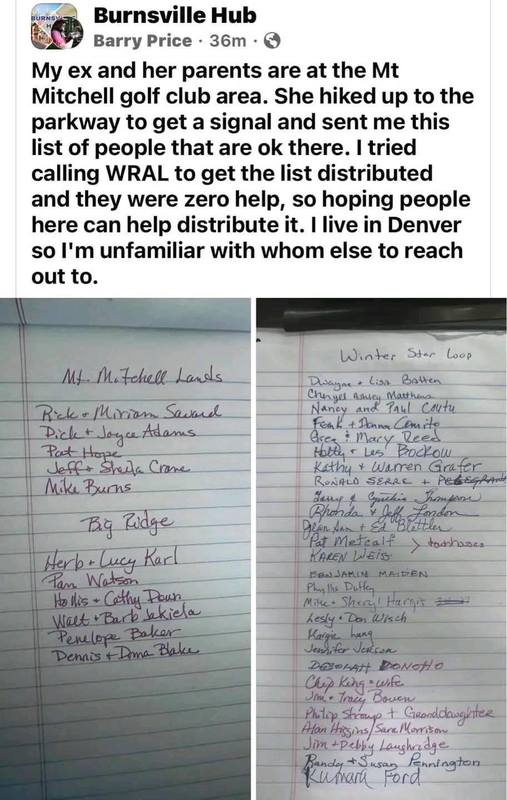 Burnsville Hub
Barry Price · 36m ·
My ex and her parents are at the Mt
Mitchell golf club area. She hiked up to the
parkway to get a signal and sent me this
list of people that are ok there. I tried
calling WRAL to get the list distributed
and they were zero help, so hoping people
here can help distribute it. I live in Denver
so I'm unfamiliar with whom else to reach
out to.
Mt. Mitchell Lands
Rick + Miriam
Dick + Joyce Adams
Pat Hope
Jeff + Sheila Crane
Mike Burns
Big Ridge
Herb + Lucy Karl
Pam Watson
Hollis + Cathy
Walt + Barb Jakiela
Penelope Baker
Dennis + Blake
Winter Star Loop
Dwayne + Lisa Batten
Ashley Matthews
Nancy and Paul
+ Donna
Greg & Mary Reed
Holly + Les Bockow
Kathy + Warren Grafer
RONALD SERRE +
Larry & Cynthia Thompson
Rhonda & Jeff London
+ Ed
Pat Metcalf > townhouses
KAREN WEISS
BENJAMIN MAIDEN
Phyllis
Mike + Sheryl Hargis
Lesly + Don Wisch
Margie Lang
Jennifer
DEBORAH DONOHO
Chip King + wife
Jim + Tracy Bowen
Philip Stroup + Granddaughter
Alan Higgins/Sara Morrison
Jim + Debby Laughridge
Randy + Susan Pennington
Kumari Ford